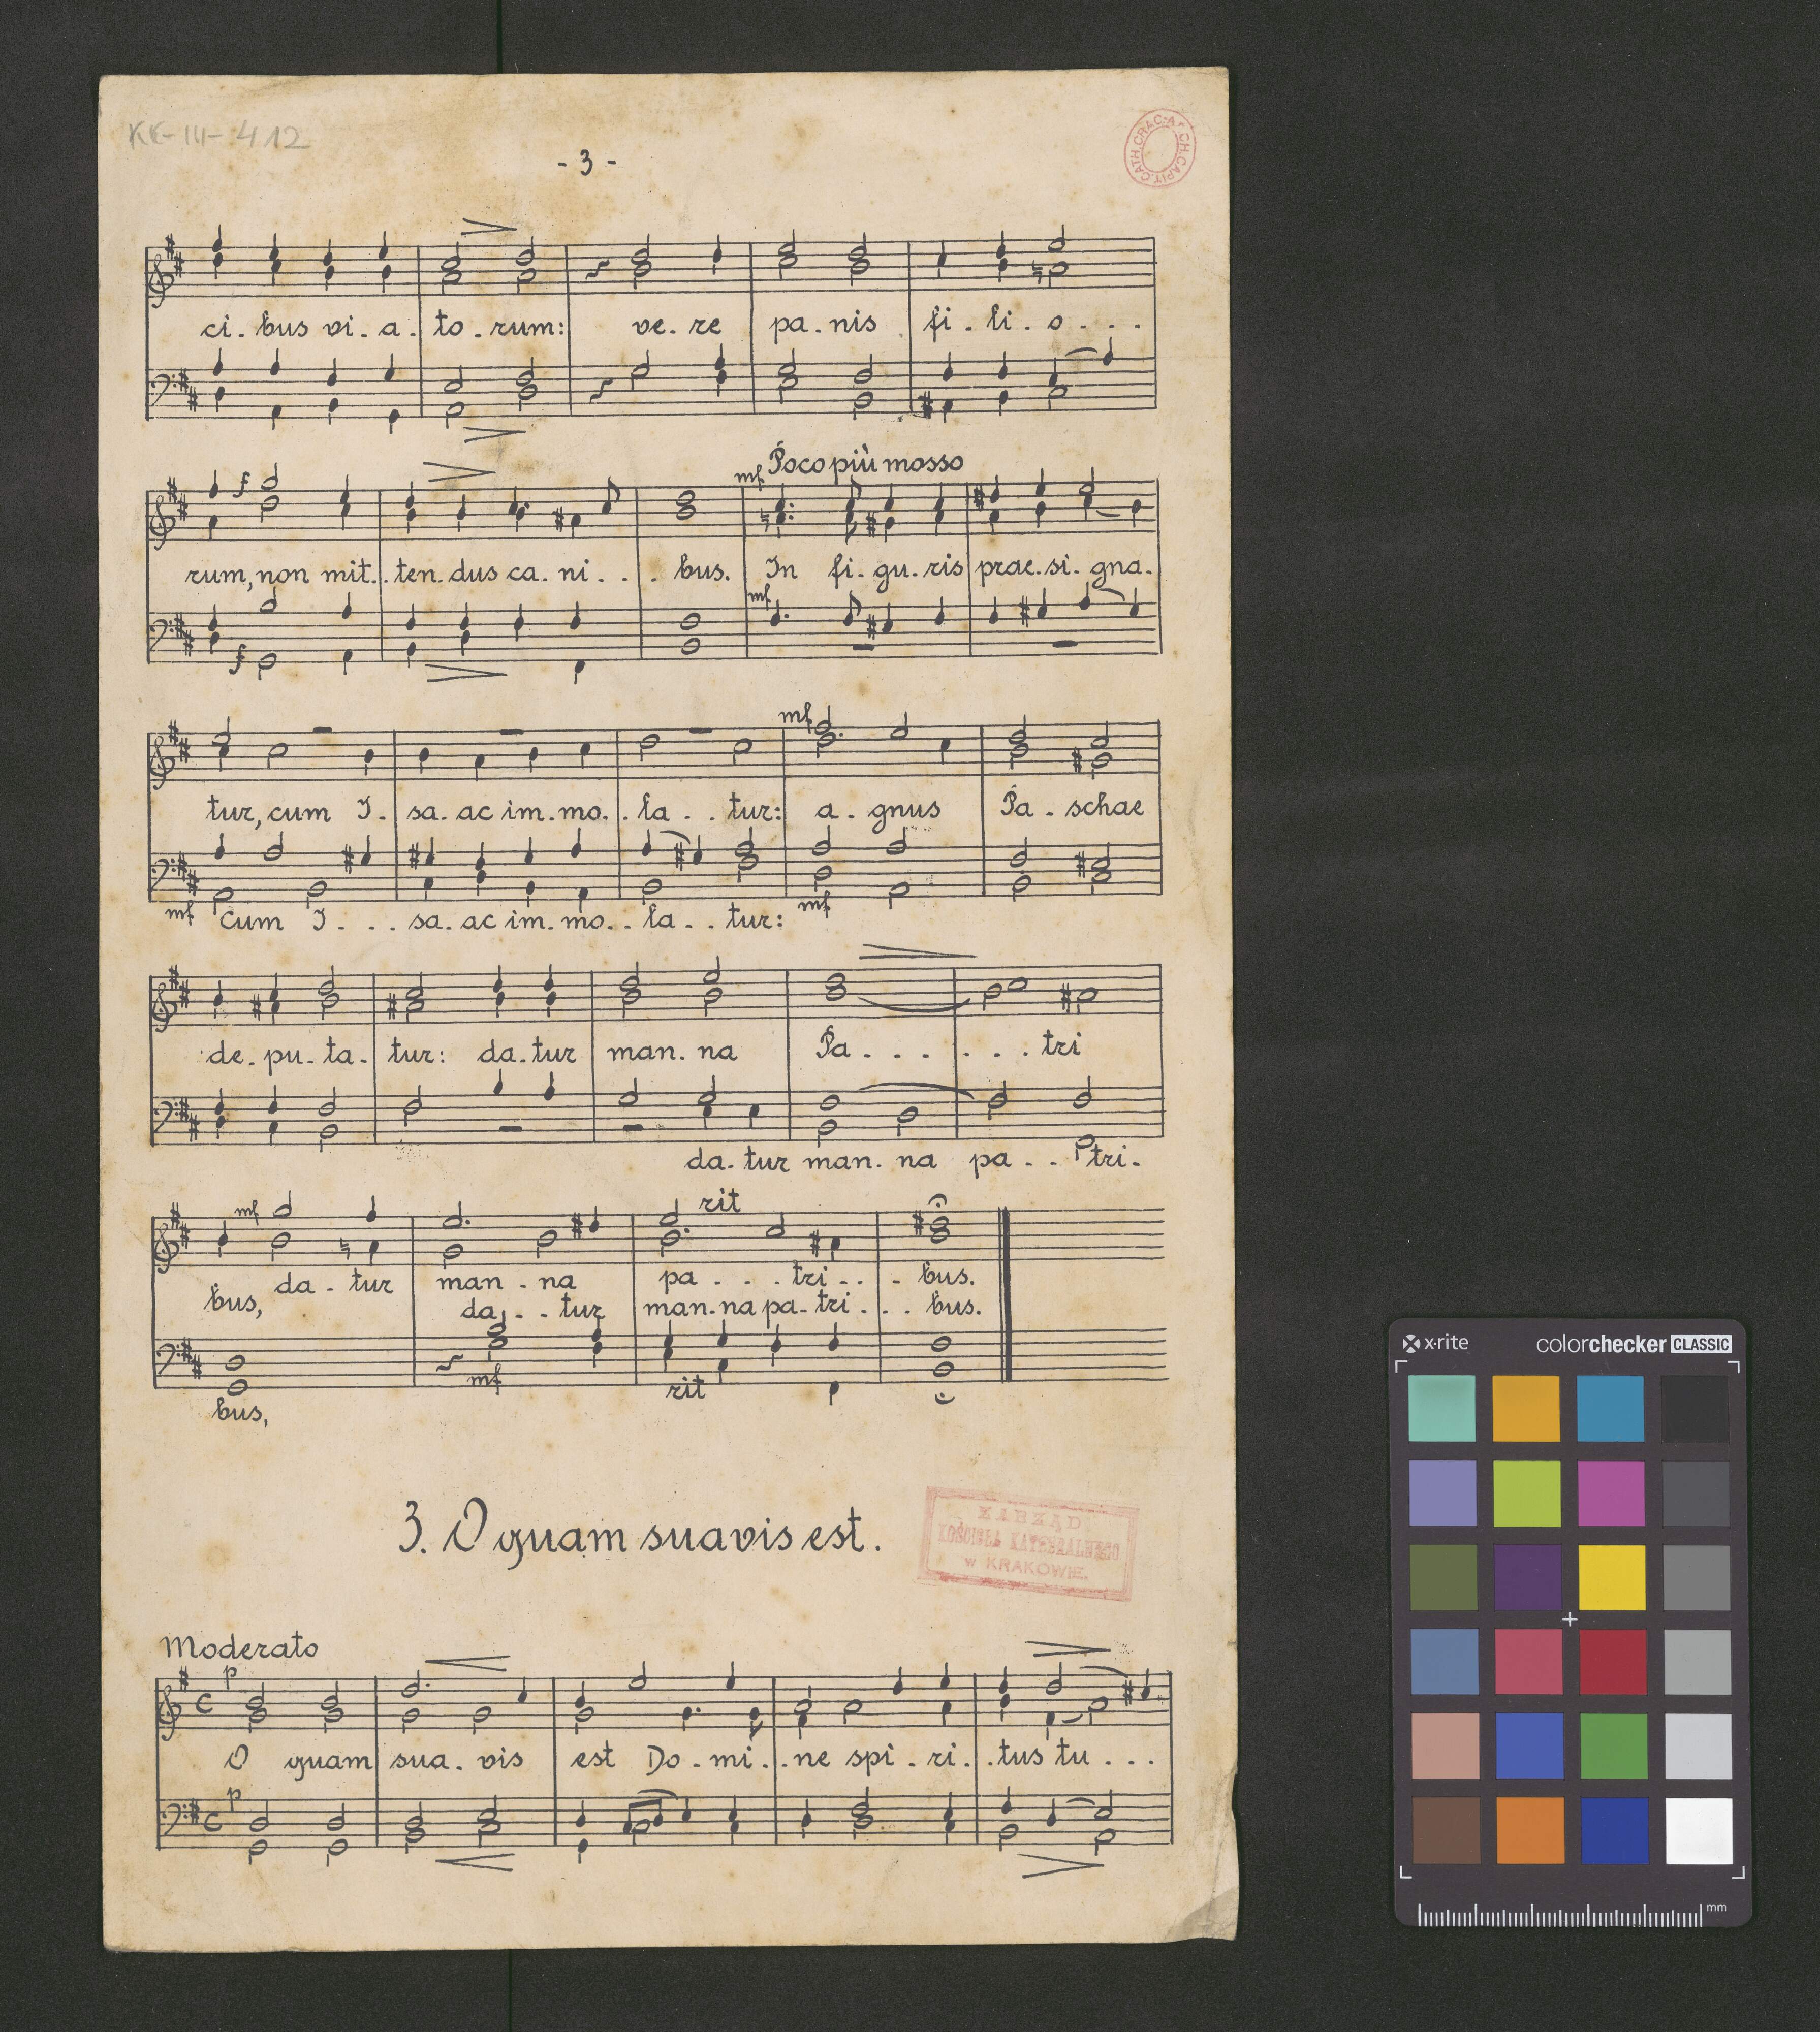 KK-III-412
- 3 -
CATH.CRAC.ARCH.CAPIT.
ci. bus vi. a. to. rum: ve. re pa. nis fi. li. o. . .
Poco più mosso
mf
f
rum, non mit. . ten. dus ca. ni. . . bus. In fi. gu. ris prae. si. gna.
mf
f
mf
tur, cum I. sa. ac im. mo. . la. . tur: a. gnus Pa. schae
mf cum I. . . sa. ac im. mo. . la. . tur: mf
de. pu. ta. tur: da. tur man. na Pa. . . . . . tri
da. tur man. na pa. . tri.
mf rit
da. tur man. na pa. . . tri. . . bus.
bus, da. . . tur man. na pa. tri. . . bus.
mf rit
bus,
3. O quam suavis est.
ZARZĄD
KOŚCIOŁA KATEDRALNEGO
w KRAKOWIE.
Moderato
p
O quam sua. vis est Do. mi. . ne spi. ri. . tus tu. . .
p
x·rite colorchecker CLASSIC
mm